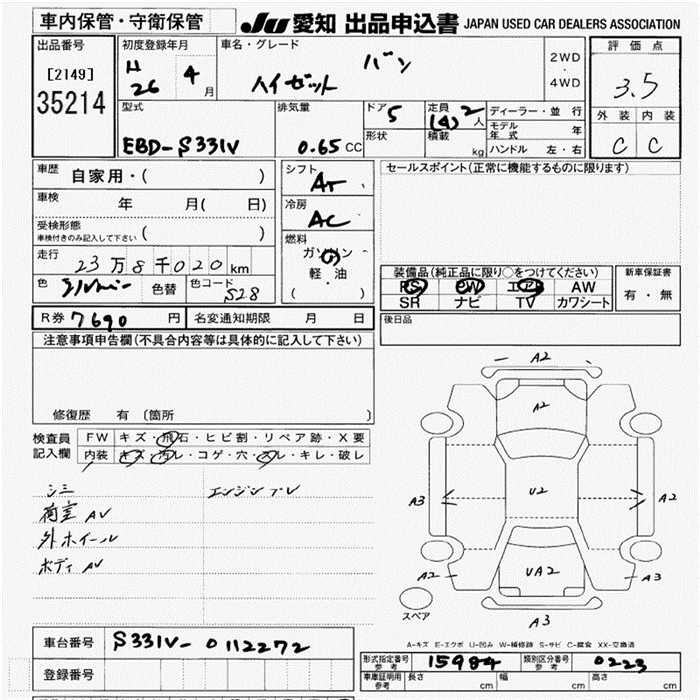 車内保管・守衛保管
JU 愛知 出品申込書 JAPAN USED CAR DEALERS ASSOCIATION
出品番号
[2149]
35214
初度登録年月
H
26 年 4 月
車名・グレード
ハイゼット バン
2WD
・
4WD
評価点
3.5
外装 内装
C C
型式
EBD-S331V
排気量
0.65 CC
ドア 5
形状
定員 (4) 2 人
積載 kg
ディーラー・並行
モデル年式 年
ハンドル 左・右
車歴 自家用・( )
車検 年 月( 日)
受検形態
車検付きのみ記入して下さい ( )
走行
23万8千020 km
色 シルバー 色替 色コード S28
シフト
AT
冷房
AC
燃料
ガソリン
・
軽油
( )
セールスポイント(正常に機能するものに限ります)
装備品(純正品に限り○をつけてください)
PS PW エアB AW
SR ナビ TV カワシート
新車保証書
有・無
R券 7690 円 名変通知期限 月 日
後日品
注意事項申告欄(不具合内容等は具体的に記入して下さい)
修復歴 有 〔箇所 〕
検査員
記入欄
FW キズ・飛石・ヒビ割・リペア跡・X要
内装 キズ・汚レ・コゲ・穴・スレ・キレ・破レ
シミ
荷室 AV
外ホイール
ボディ AV
エンジンブレ
A2
A2
A3
U2
A2
A2
UA2
A3
A3
スペア
A-キズ E-エクボ U-凹み W-補修跡 S-サビ C-腐食 XX-交換済
車台番号 S331V-0112272
登録番号
形式指定番号
参考
15984
類別区分番号
参考
0223
車庫証明用
参考
長さ cm 幅 cm 高さ cm